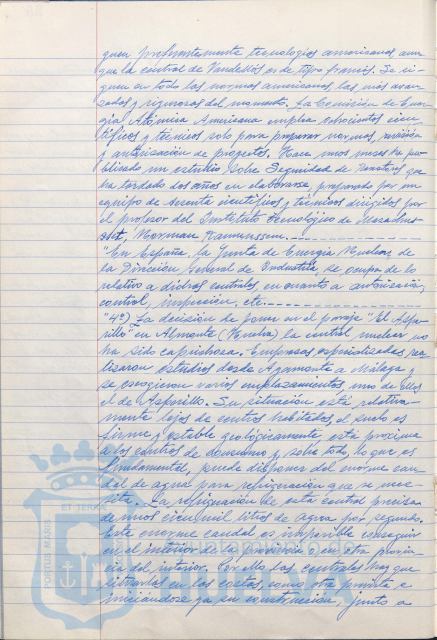 guen preferentemente tecnologias americanas aun-
que la central de Vandellós es de tipo francés. Se si-
guen en todo las normas americanas, las mas avan-
zadas y rigurosas del momento. La Comisión de Ener-
gia Atómica Americana emplea ochocientos cien-
tíficos y técnicos solo para preparar normas, revisión
y autorización de proyectos. Hace unos meses ha pu-
blicado un estudio sobre Seguridad de reactores que
ha tardado dos años en elaborarse, preparado por un
equipo de sesenta científicos y técnicos dirigidos por
el profesor del Instituto Tecnológico de Masachus-
sett, Norman Ramunssen.
"En España, la Junta de Energia Nuclear de
la Dirección General de Industria, se ocupa de lo
relativo a dichos controles, en cuanto a autorización,
control, inspección, etc.
"4º) La decisión de poner en el paraje "El Aspe-
rillo" en Almonte (Huelva) la central nuclear no
ha sido caprichosa. Empresas especializadas rea-
lizaron estudios desde Ayamonte a Málaga y
se escogieron varios emplazamientos uno de ellos
el de Asperillo. Su situación está relativa-
mente lejos de centros habitados, el suelo es
firme y estable geológicamente, esta proxima
a los centros de consumo y, sobre todo, lo que es
fundamental, puede disponer del enorme cau-
dal de agua para refrigeración que se nece-
sita. La refrigeración de esta central precisa
de unos cien mil litros de agua por segundo.
Este enorme caudal es imposible conseguir
en el interior de la provincia o en otra provin-
cia del interior. Por ello las centrales hay que
situarlas en las costas, como otra prevista e
iniciándose ya su construcción, junto a
PORTUS MARIS
ET TERRÆ